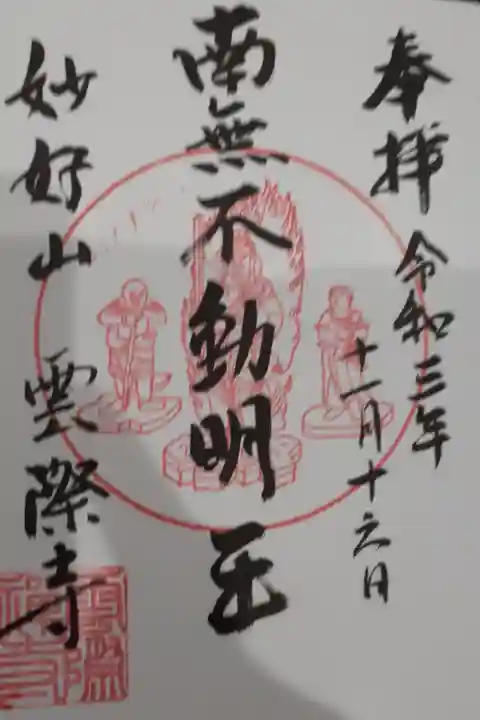 奉拝
令和三年
十一月十六日
南無不動明王
妙好山 雲際寺